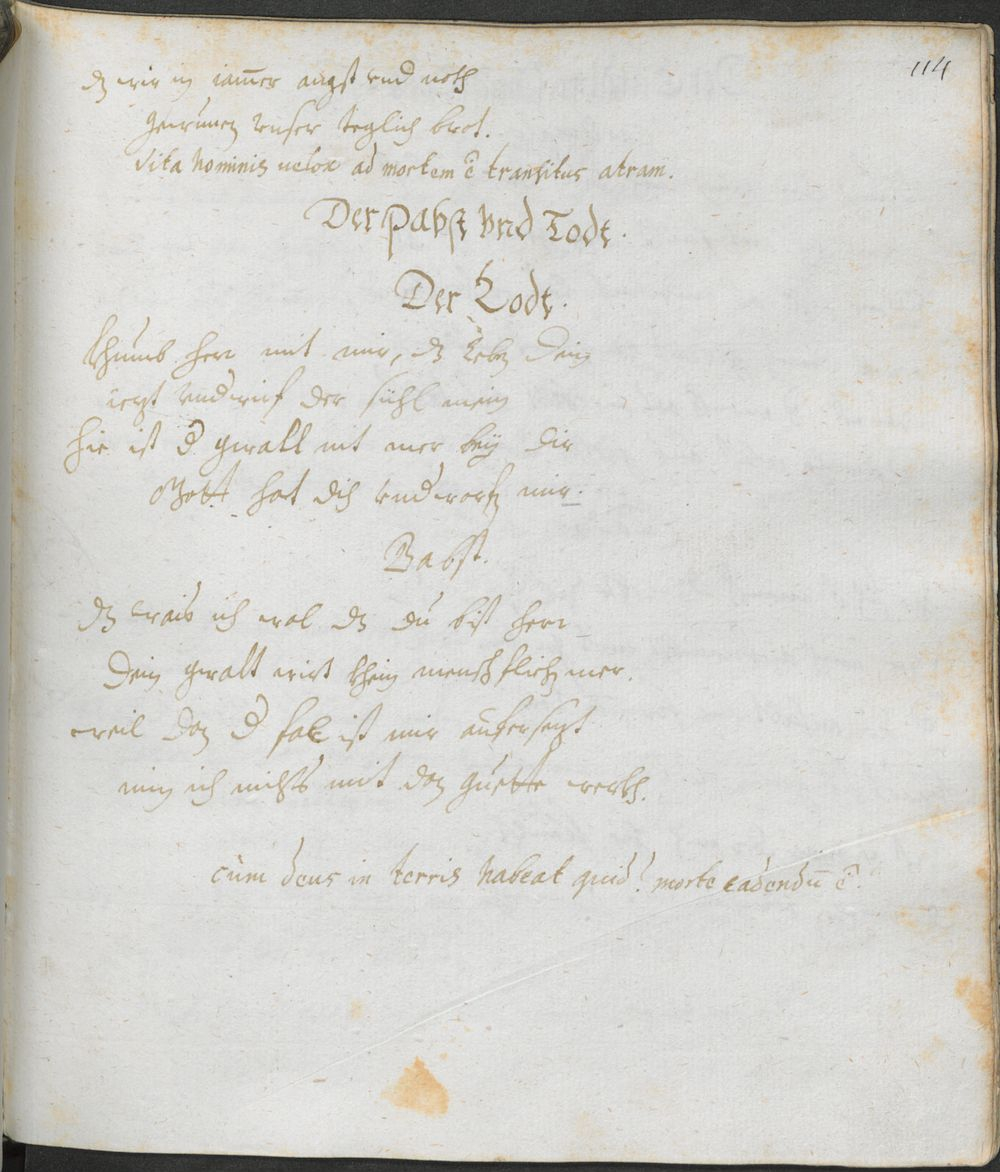 114
dz wir in jam̄er angst vnd noth
gewinnen vnser teglich brot.
Vita hominis uelox ad mortem ē transitus atram.
Der pabst vnd Todt.
Der Todt.
Khumb herr mit mir, dz leben dein
ietzt vndwirf der sichl mein
hie ist d gwalt nit mer bey dir
Gott hat dich vndworfen mir.
Babst.
dz wais ich wol dz du bist herr
dein gwalt wirt khein mensch flichen mer.
weil dan d fal ist mir aufersetzt
nim ich nichts mit dan guette werkh.
cum deus in terris habeat quid? morte cadendū ē.